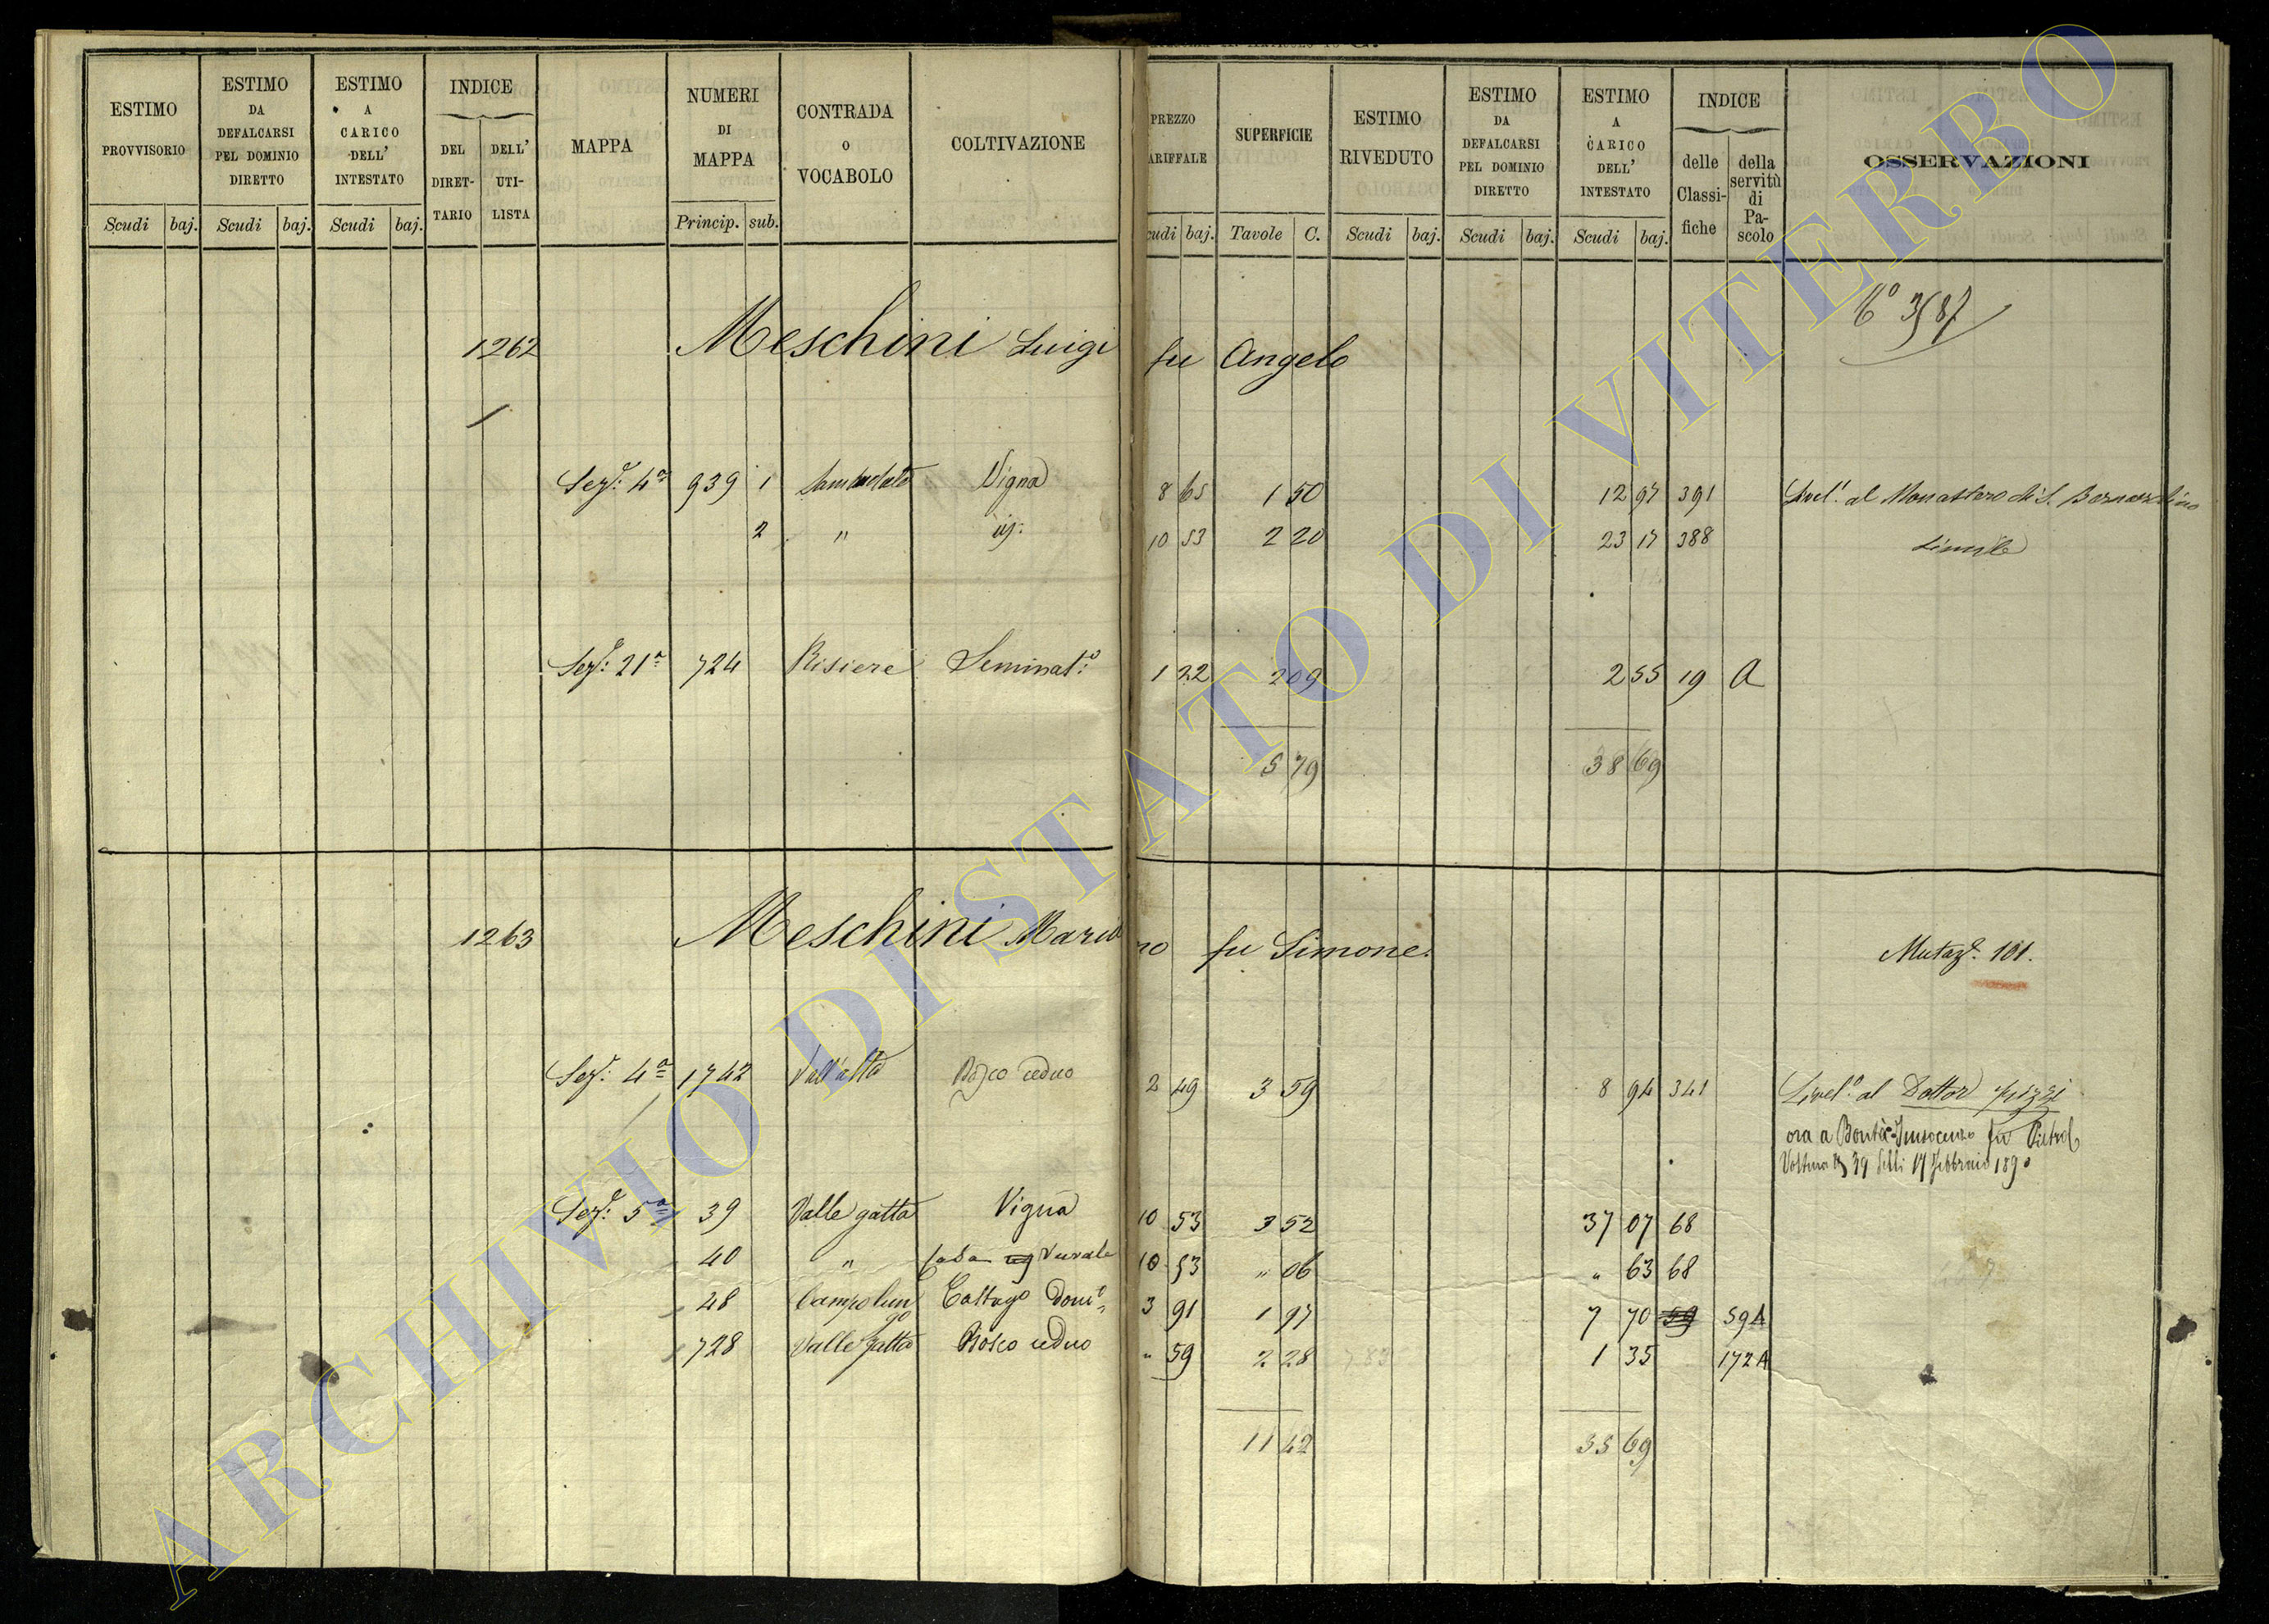 ESTIMO PROVVISORIO | ESTIMO DA DEFALCARSI PEL DOMINIO DIRETTO | ESTIMO A CARICO DELL' INTESTATO | INDICE DEL DIRETTARIO | DELL' UTILISTA | MAPPA | NUMERI DI MAPPA | CONTRADA O VOCABOLO | COLTIVAZIONE | PREZZO ARIFFALE | SUPERFICIE | ESTIMO RIVEDUTO | ESTIMO DA DEFALCARSI PEL DOMINIO DIRETTO | ESTIMO A CARICO DELL' INTESTATO | INDICE delle Classifiche | della servitù di Pascolo | OSSERVAZIONI
Scudi baj. Scudi baj. Scudi baj. Princip. sub. cudi baj. Tavole C. Scudi baj. Scudi baj. Scudi baj.
1262 Meschini Luigi fu Angelo
Sez.e 4a 939 1 Vigna 8 65 1 50 12 97 391 Livel. al Monastero di S. Bernardino
2 " id. 10 53 2 20 23 17 388 Simile
Sez.e 21a 724 Risiere Seminat.o 1 22 2 09 2 55 19 A
5 79 38 69
1263 Meschini Mariano fu Simone Mutaz.e 101.
Sez.e 4a 1742 Vall'alta Bosco ceduo 2 49 3 59 8 94 341 Livel.o al Dottor
ora a Innocenzo fu Pietro
39 17 Febbraio 1890
Sez.e 5a 39 Valle gatta Vigna 10 53 3 52 37 07 68
40 " Casa Rurale 10 53 " 06 " 63 68
28 Campolungo Castag.o Dom.o 3 91 1 97 7 70 59 59 A
728 Valle gatta Bosco ceduo " 59 2 28 1 35 172 A
11 42 55 69
ARCHIVIO DI STATO DI VITERBO